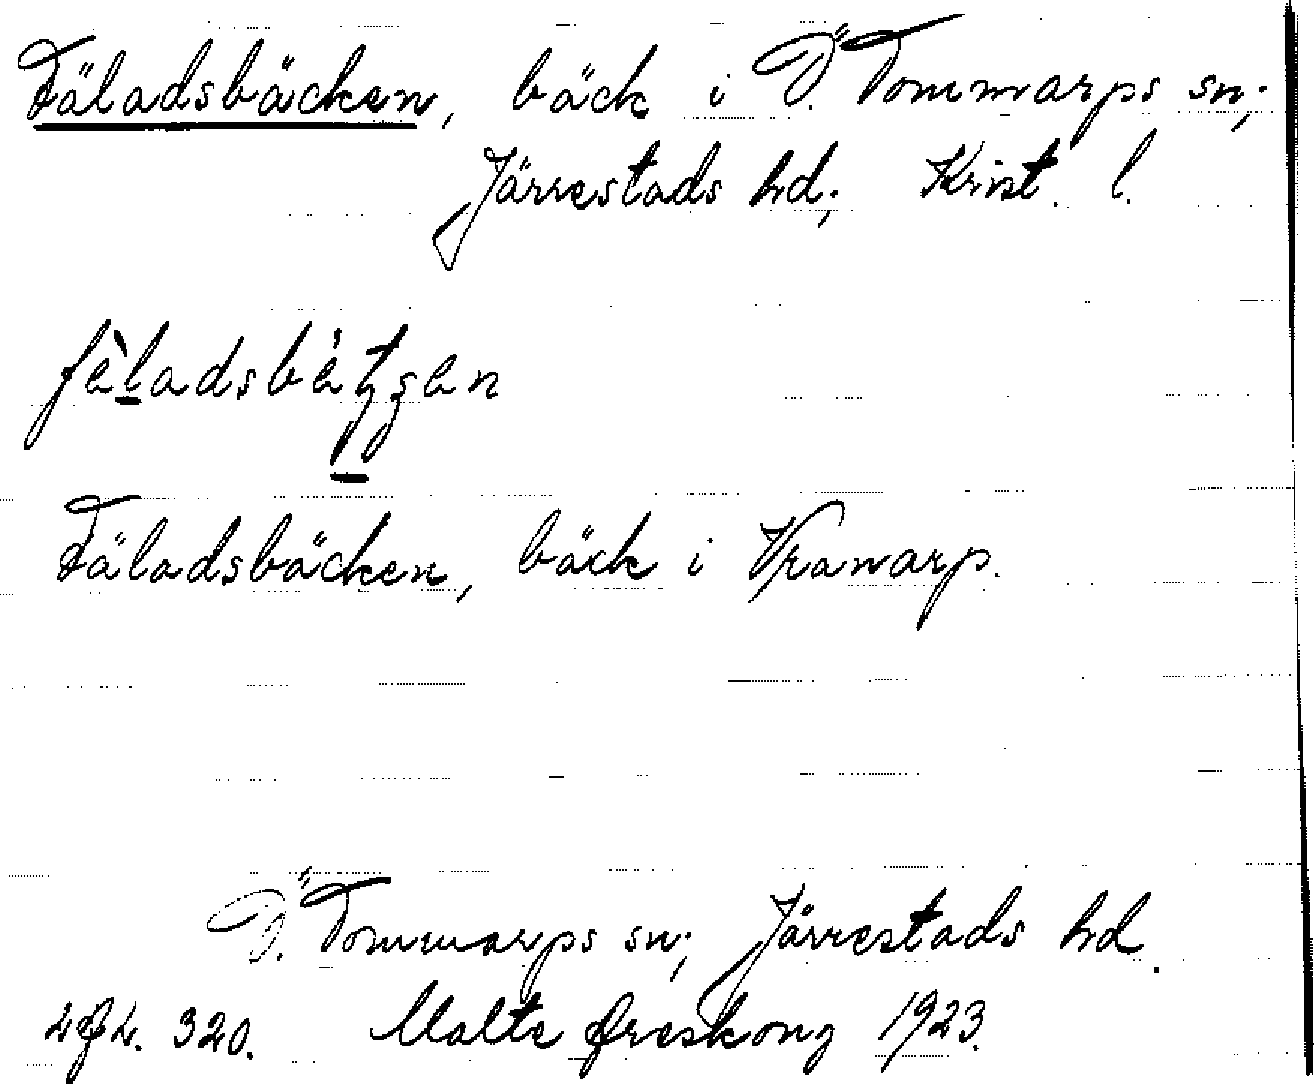 Fäladsbäcken, bäck i Ö. Tommarps sn;
Järrestads hd; Krist. l.
fèladsbètʒen
Fäladsbäcken, bäck i Vranarp.
Ö. Tommarps sn; Järrestads hd.
320. Malte Areskong 1923.